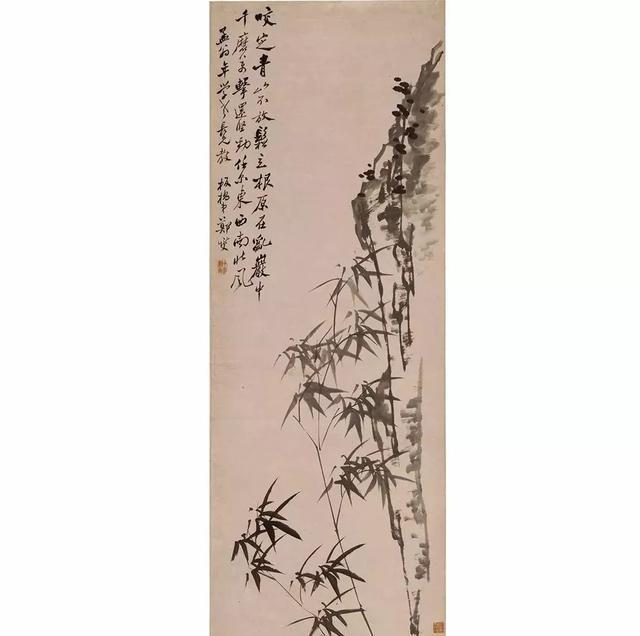 咬定青山不放鬆立根原在亂巖中
千磨万擊還堅勁任尔東西南北風
年学老長兄教 板橋弟鄭燮